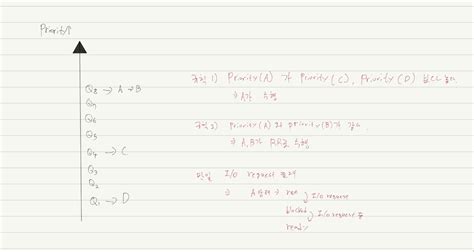 Priority↑
Q8 → A → B
Q7
Q6
Q5
Q4 → C
Q3
Q2
Q1 → D
규칙 1) Priority(A) 가 Priority(C), Priority(D) 보다 높다
⇒ A가 수행
규칙 2) Priority(A) 와 Priority(B)가 같다.
⇒ A,B가 RR로 수행
만일 I/O request 존재
⇒ A상태 → run
I/O request
blocked
I/O request 종료
ready